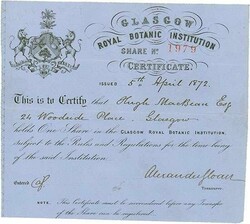 GLASGOW
ROYAL BOTANIC INSTITUTION
SHARE No 1979
CERTIFICATE.
ISSUED 5th April 1872.
This is to Certify that Hugh MacBean Esq
24 Woodside Place - Glasgow
holds One Share in the GLASGOW ROYAL BOTANIC INSTITUTION
subject to the Rules and Regulations for the time being
of the said Institution.
Entered
TREASURER.
NOTE. This Certificate must be surrendered before any Transfer
of the Share can be registered.